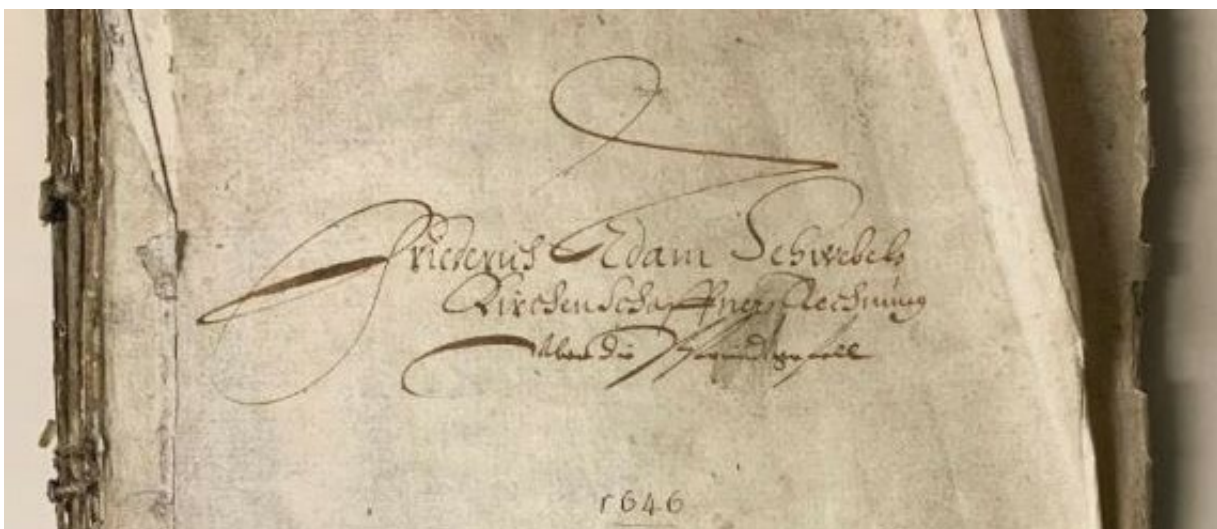 Friederich Adam Schwebels
Kirchenschaffners Rechnung
Über die
1646